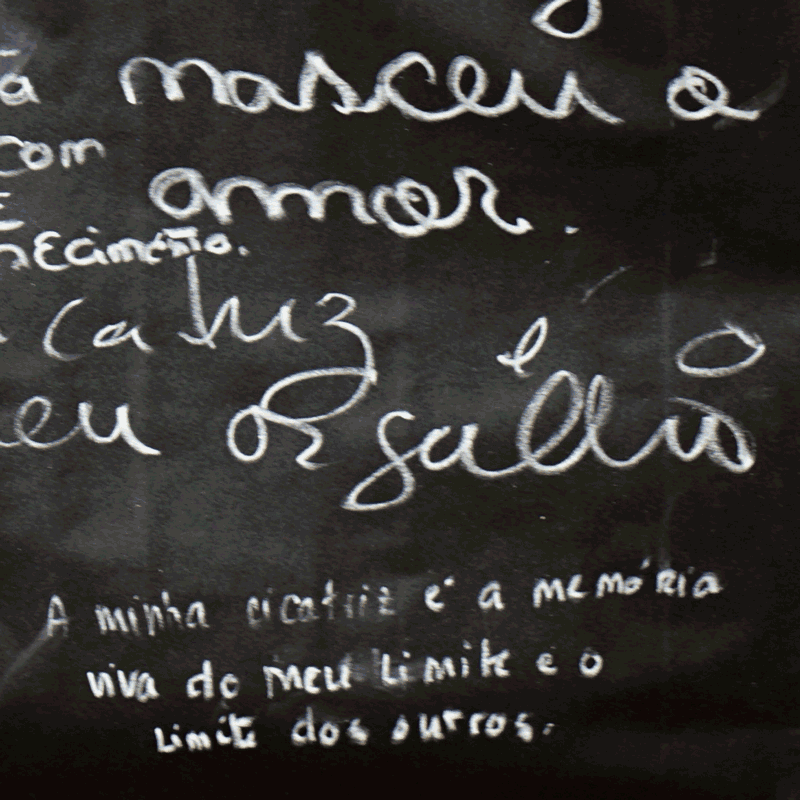 nasceu o
com
amor.
catriz é o
eu orgulho
A minha cicatriz é a memória
viva do meu limite e o
limite dos outros.